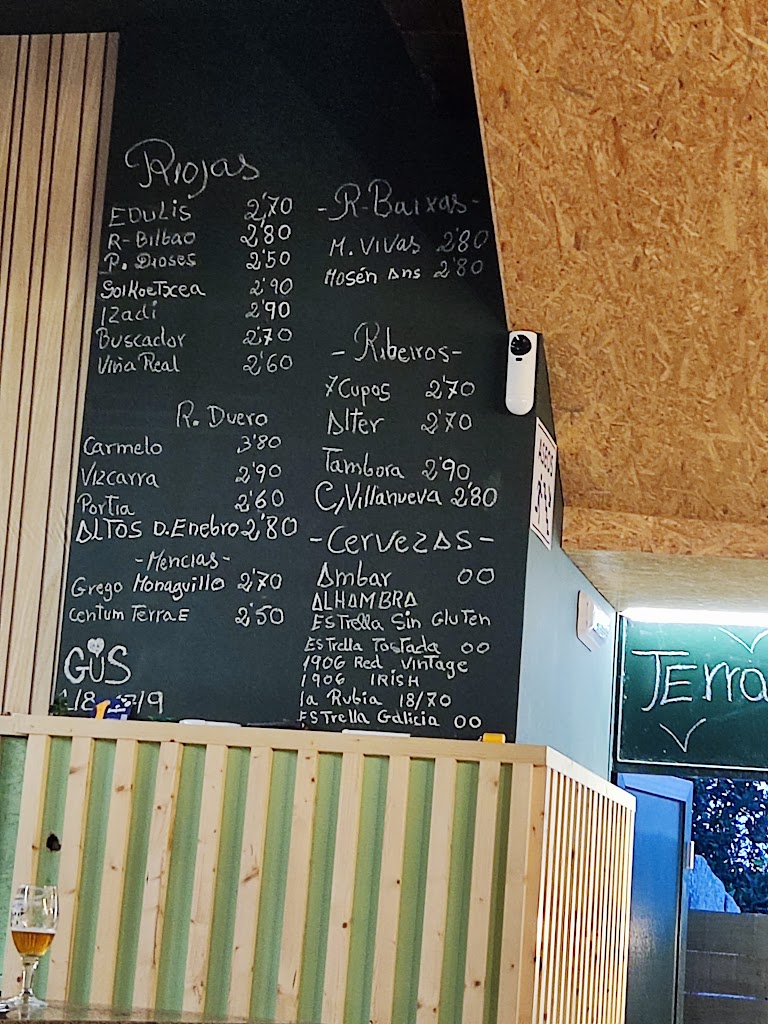 Riojas
EDULIS 2'70
R-Bilbao 2'80
P. Dioses 2'50
Soikoetxea 2'90
Izadi 2'90
Buscador 2'70
Viña Real 2'60
R. Duero
Carmelo 3'80
Vizcarra 2'90
Portia 2'60
ALTOS D. Enebro 2'80
-Mencias-
Grego Monaguillo 2'70
Centum TerraE 2'50
GUS
-R-Baixas-
M. Vivas 2'80
Mosén Ans 2'80
-Ribeiros-
7 Cupos 2'70
Alter 2'70
Tambora 2'90
C, Villanueva 2'80
-Cervezas-
Ambar 00
ALHAMBRA
Estrella Sin Gluten
Estrella Tostada 00
1906 Red. Vintage
1906 IRISH
la Rubia 18/70
Estrella Galicia 00
ASEOS
Terra